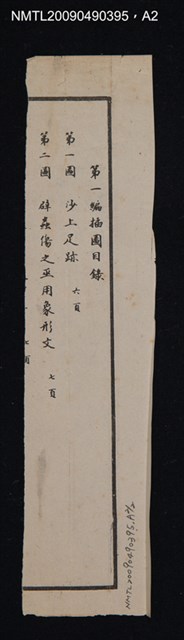 NMTL20090490395，A2
第一編插圖目錄
第一圖 沙上足跡 六頁
第二圖 辟蟲傷之巫用象形文 七頁
NMTL20090490395.A2